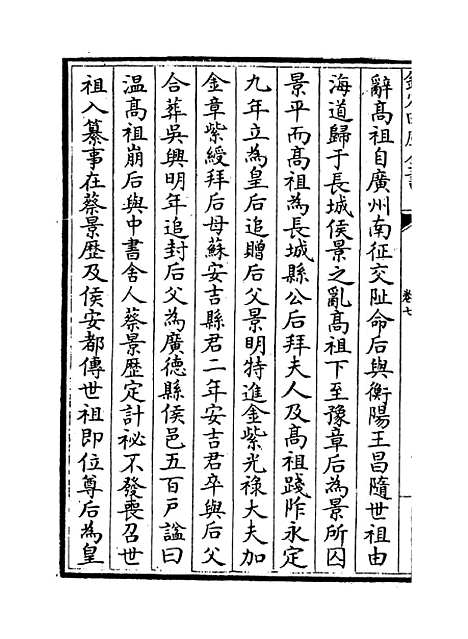 欽定四庫全書
卷七
辭髙祖自廣州南征交阯命后與衡陽王昌隨世祖由
海道歸于長城侯景之亂髙祖下至豫章后為景所囚
景平而髙祖為長城縣公后拜夫人及髙祖踐阼永定
九年立為皇后追贈后父景明特進金紫光祿大夫加
金章紫綬拜后母蘇安吉縣君二年安吉君卒與后父
合葬吳興明年追封后父為廣德縣侯邑五百戸諡曰
温髙祖崩后與中書舍人蔡景歴定計祕不發喪召世
祖入纂事在蔡景歴及侯安都傳世祖即位尊后為皇